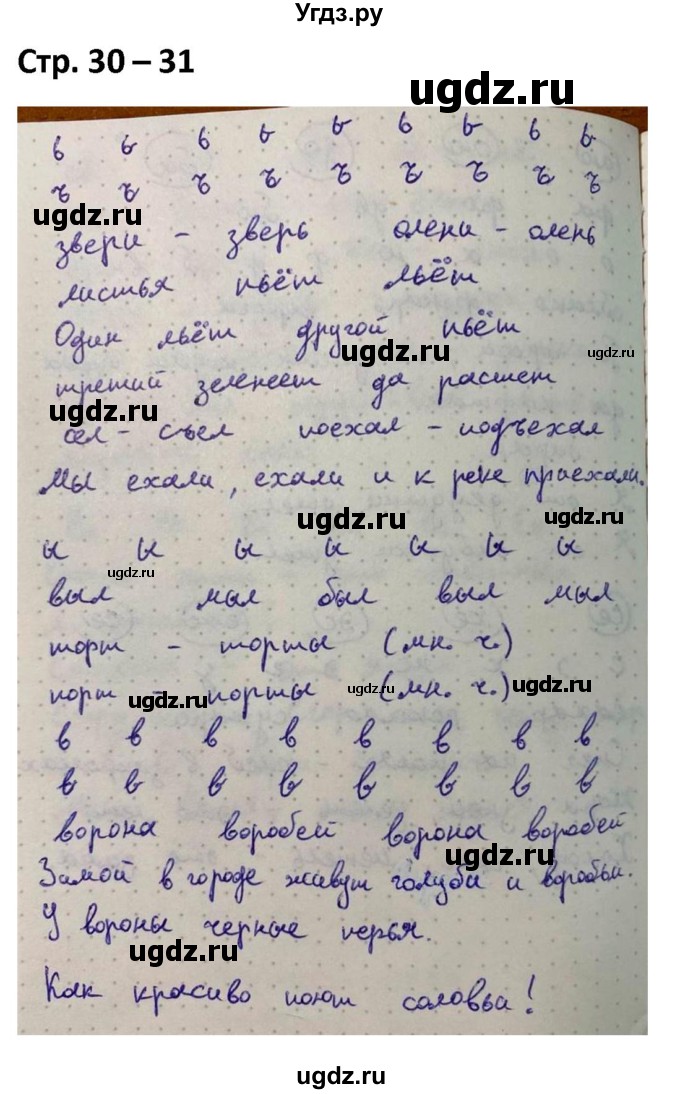 Угдз.ру
Стр. 30 – 31
ugdz.ru
ь ь ь ь ь ь ь ь ь
ъ ъ ъ ъ ъ ъ ъ ъ ъ
ugdz.ru
звери - зверь олени - олень
листья пьёт льёт
Один льёт другой пьёт
ugdz.ru ugdz.ru
третий зеленеет да растет
ugdz.ru
сел - съел поехал - подъехал
Мы ехали, ехали и к реке приехали.
ugdz.ru ugdz.ru
ы ы ы ы ы ы ы
ugdz.ru
выл мыл был выл мыл
торт - торты (мн. ч.)
порт - порты (мн. ч.)
ugdz.ru ugdz.ru ugdz.ru
в в в в в в в в
в в в в в в в в
ворона воробей ворона воробей
ugdz.ru
Зимой в городе живут голуби и воробьи.
У вороны черные перья.
ugdz.ru
Как красиво поют соловьи!
ugdz.ru
ugdz.ru